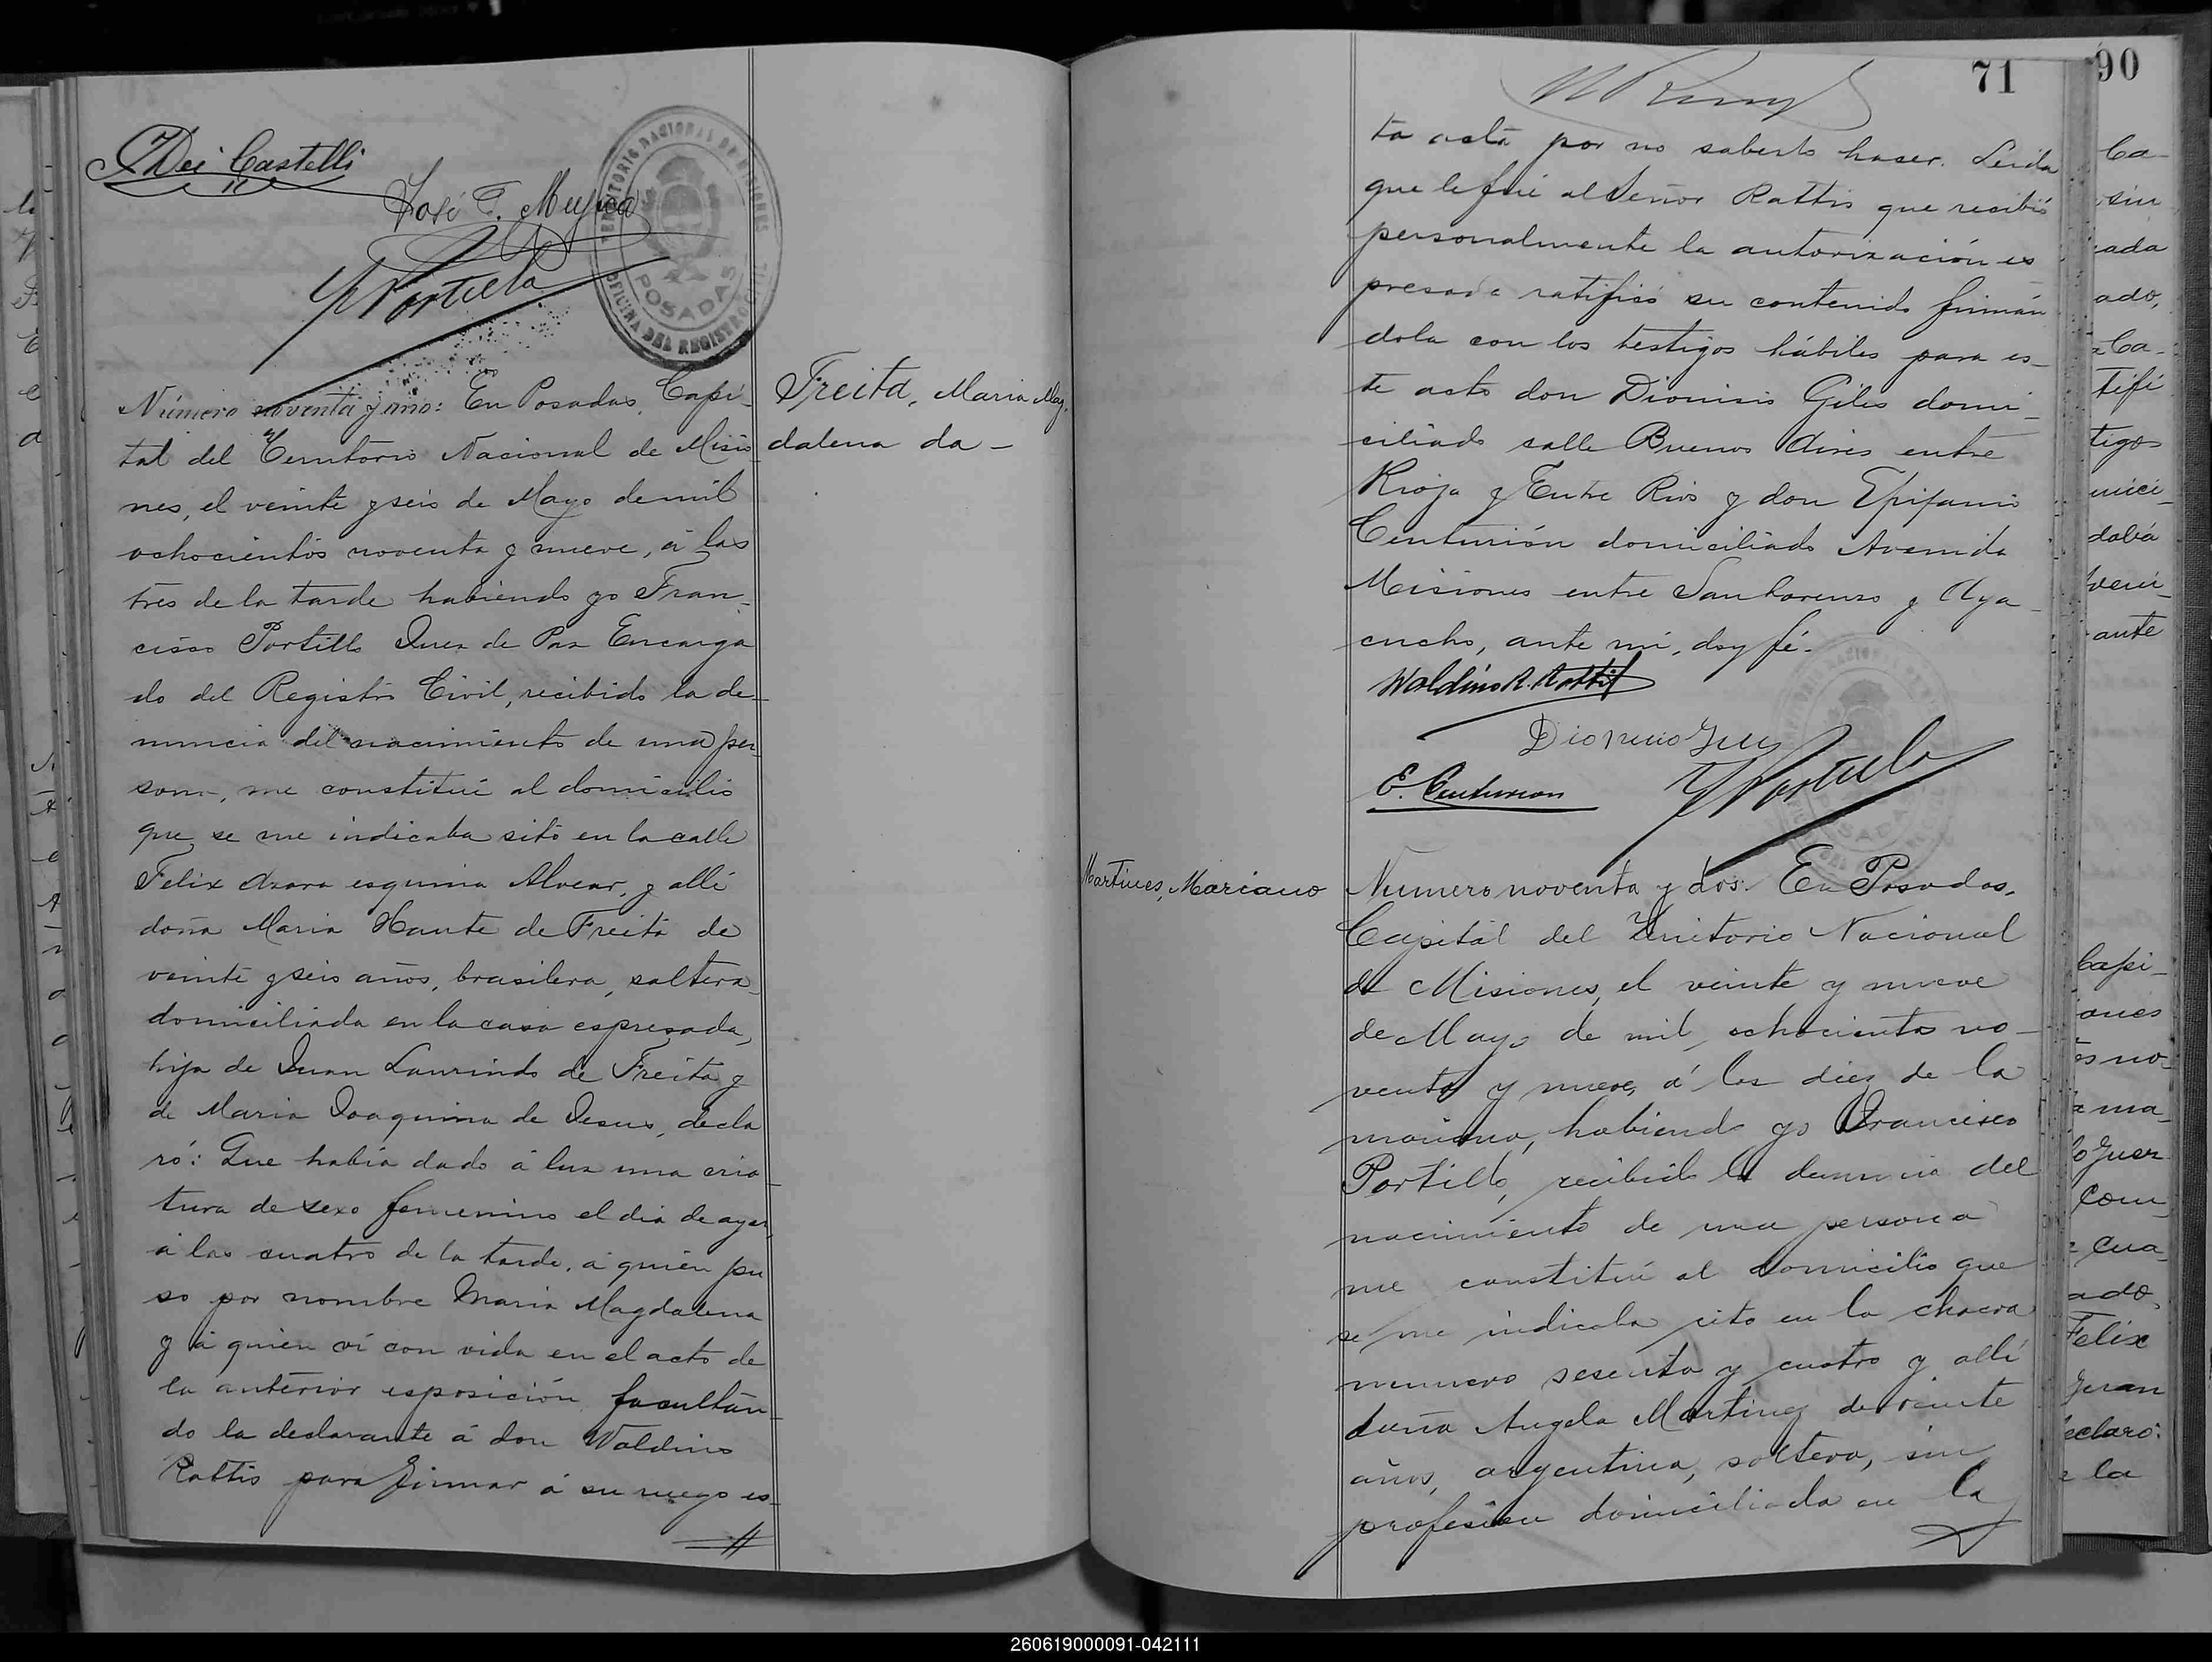 Dei Castelli
José T. Mujica
F Portillo
TERRITORIO NACIONAL DE MISIONES
POSADAS
OFICINA DEL REGISTRO CIVIL
Freita, Maria Mag,
dalena da -
Número noventa y uno: En Posadas, Capi-
tal del Territorio Nacional de Misio
nes, el veinte y seis de Mayo de mil
ochocientos noventa y nueve, á las
tres de la tarde habiendo yo Fran-
cisco Portillo Juez de Paz Encarga
do del Registro Civil, recibido la de-
nuncia del nacimiento de una per-
sona, me constituí al domicilio
que se me indicaba sito en la calle
Felix Azara esquina Alvear, y allí
doña Maria Hante de Freita de
veinte y seis años, brasilera, soltera
domiciliada en la casa espresada,
hija de Juan Laurindo de Freita y
de Maria Joaquina de Jesus, decla
ró: Que había dado á luz una cria-
tura de sexo femenino el dia de ayer,
á las cuatro de la tarde, á quien pu
so por nombre Maria Magdalena
y á quien ví con vida en el acto de
la anterior esposición, facultan-
do la declarante á don Waldino
Rattis para firmar á su ruego es-
71
90
ta acta por no saberlo haser. Leida
que le fué al Señor Rattis que recibió
personalmente la autorización es
presada ratificó su contenido firmán
dola con los testigos hábiles para es-
te acto don Dionisio Giles domi-
ciliado calle Buenos Aires entre
Rioja y Entre Rios y don Epifanio
Centurión domiciliado Avenida
Misiones entre San Lorenzo y Aya-
cucho, ante mí, doy fé.
Waldino R. Rattis
Dionicio
E. Centurion
F Portillo
Martines, Mariano
Numero noventa y dos. En Posadas,
Capital del Territorio Nacional
de Misiones, el veinte y nueve
de Mayo de mil ochocientos no-
venta y nueve, á las diez de la
mañana, habiendo yo Francisco
Portillo, recibido la denuncia del
nacimiento de una persona
me constituí al domicilio que
se me indicaba sito en la chacra
numero sesenta y cuatro y allí
doña Angela Martinez de veinte
años, argentina, soltera, sin
profesion domiciliada en la
Ca-
sin
ada
ado,
Ca-
tifi
tigos
mici-
ante
Capi-
ones
os no-
ma-
Juez
Com-
Cua-
ado,
Felix
eclaró:
la
260619000091-042111